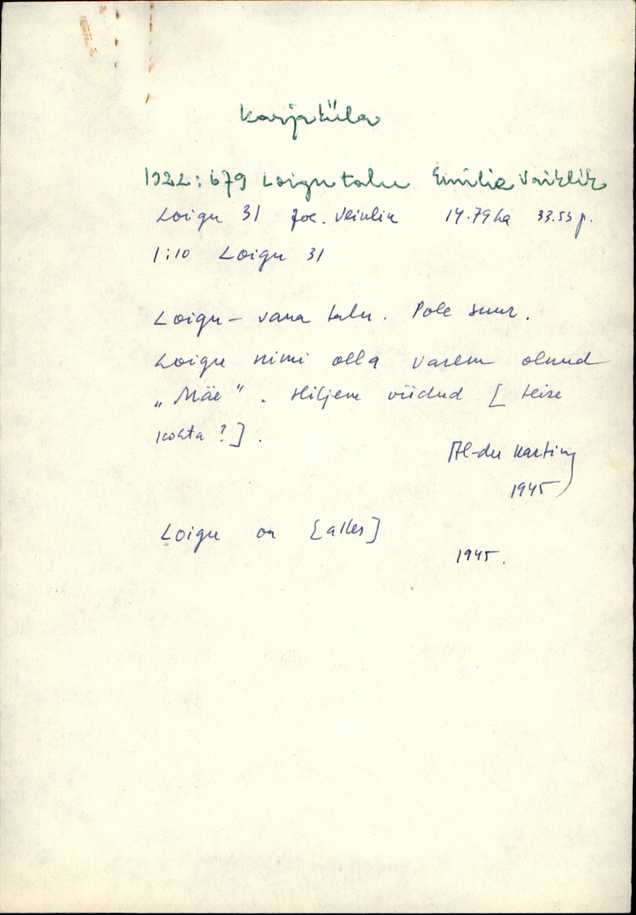 Karjaküla
1922: 679 Loigu talu Emilie Vaiklik
Loigu 31 Joe. 14.79 ha 33.53 p.
1:10 Loigu 31
Loigu – vana talu. Pole suur.
Loigu nimi olla varem olnud
„Mäe". Hiljem viidud [teise
kohta?].
Al-der Karting
1945)
Loigu on [alles]
1945.